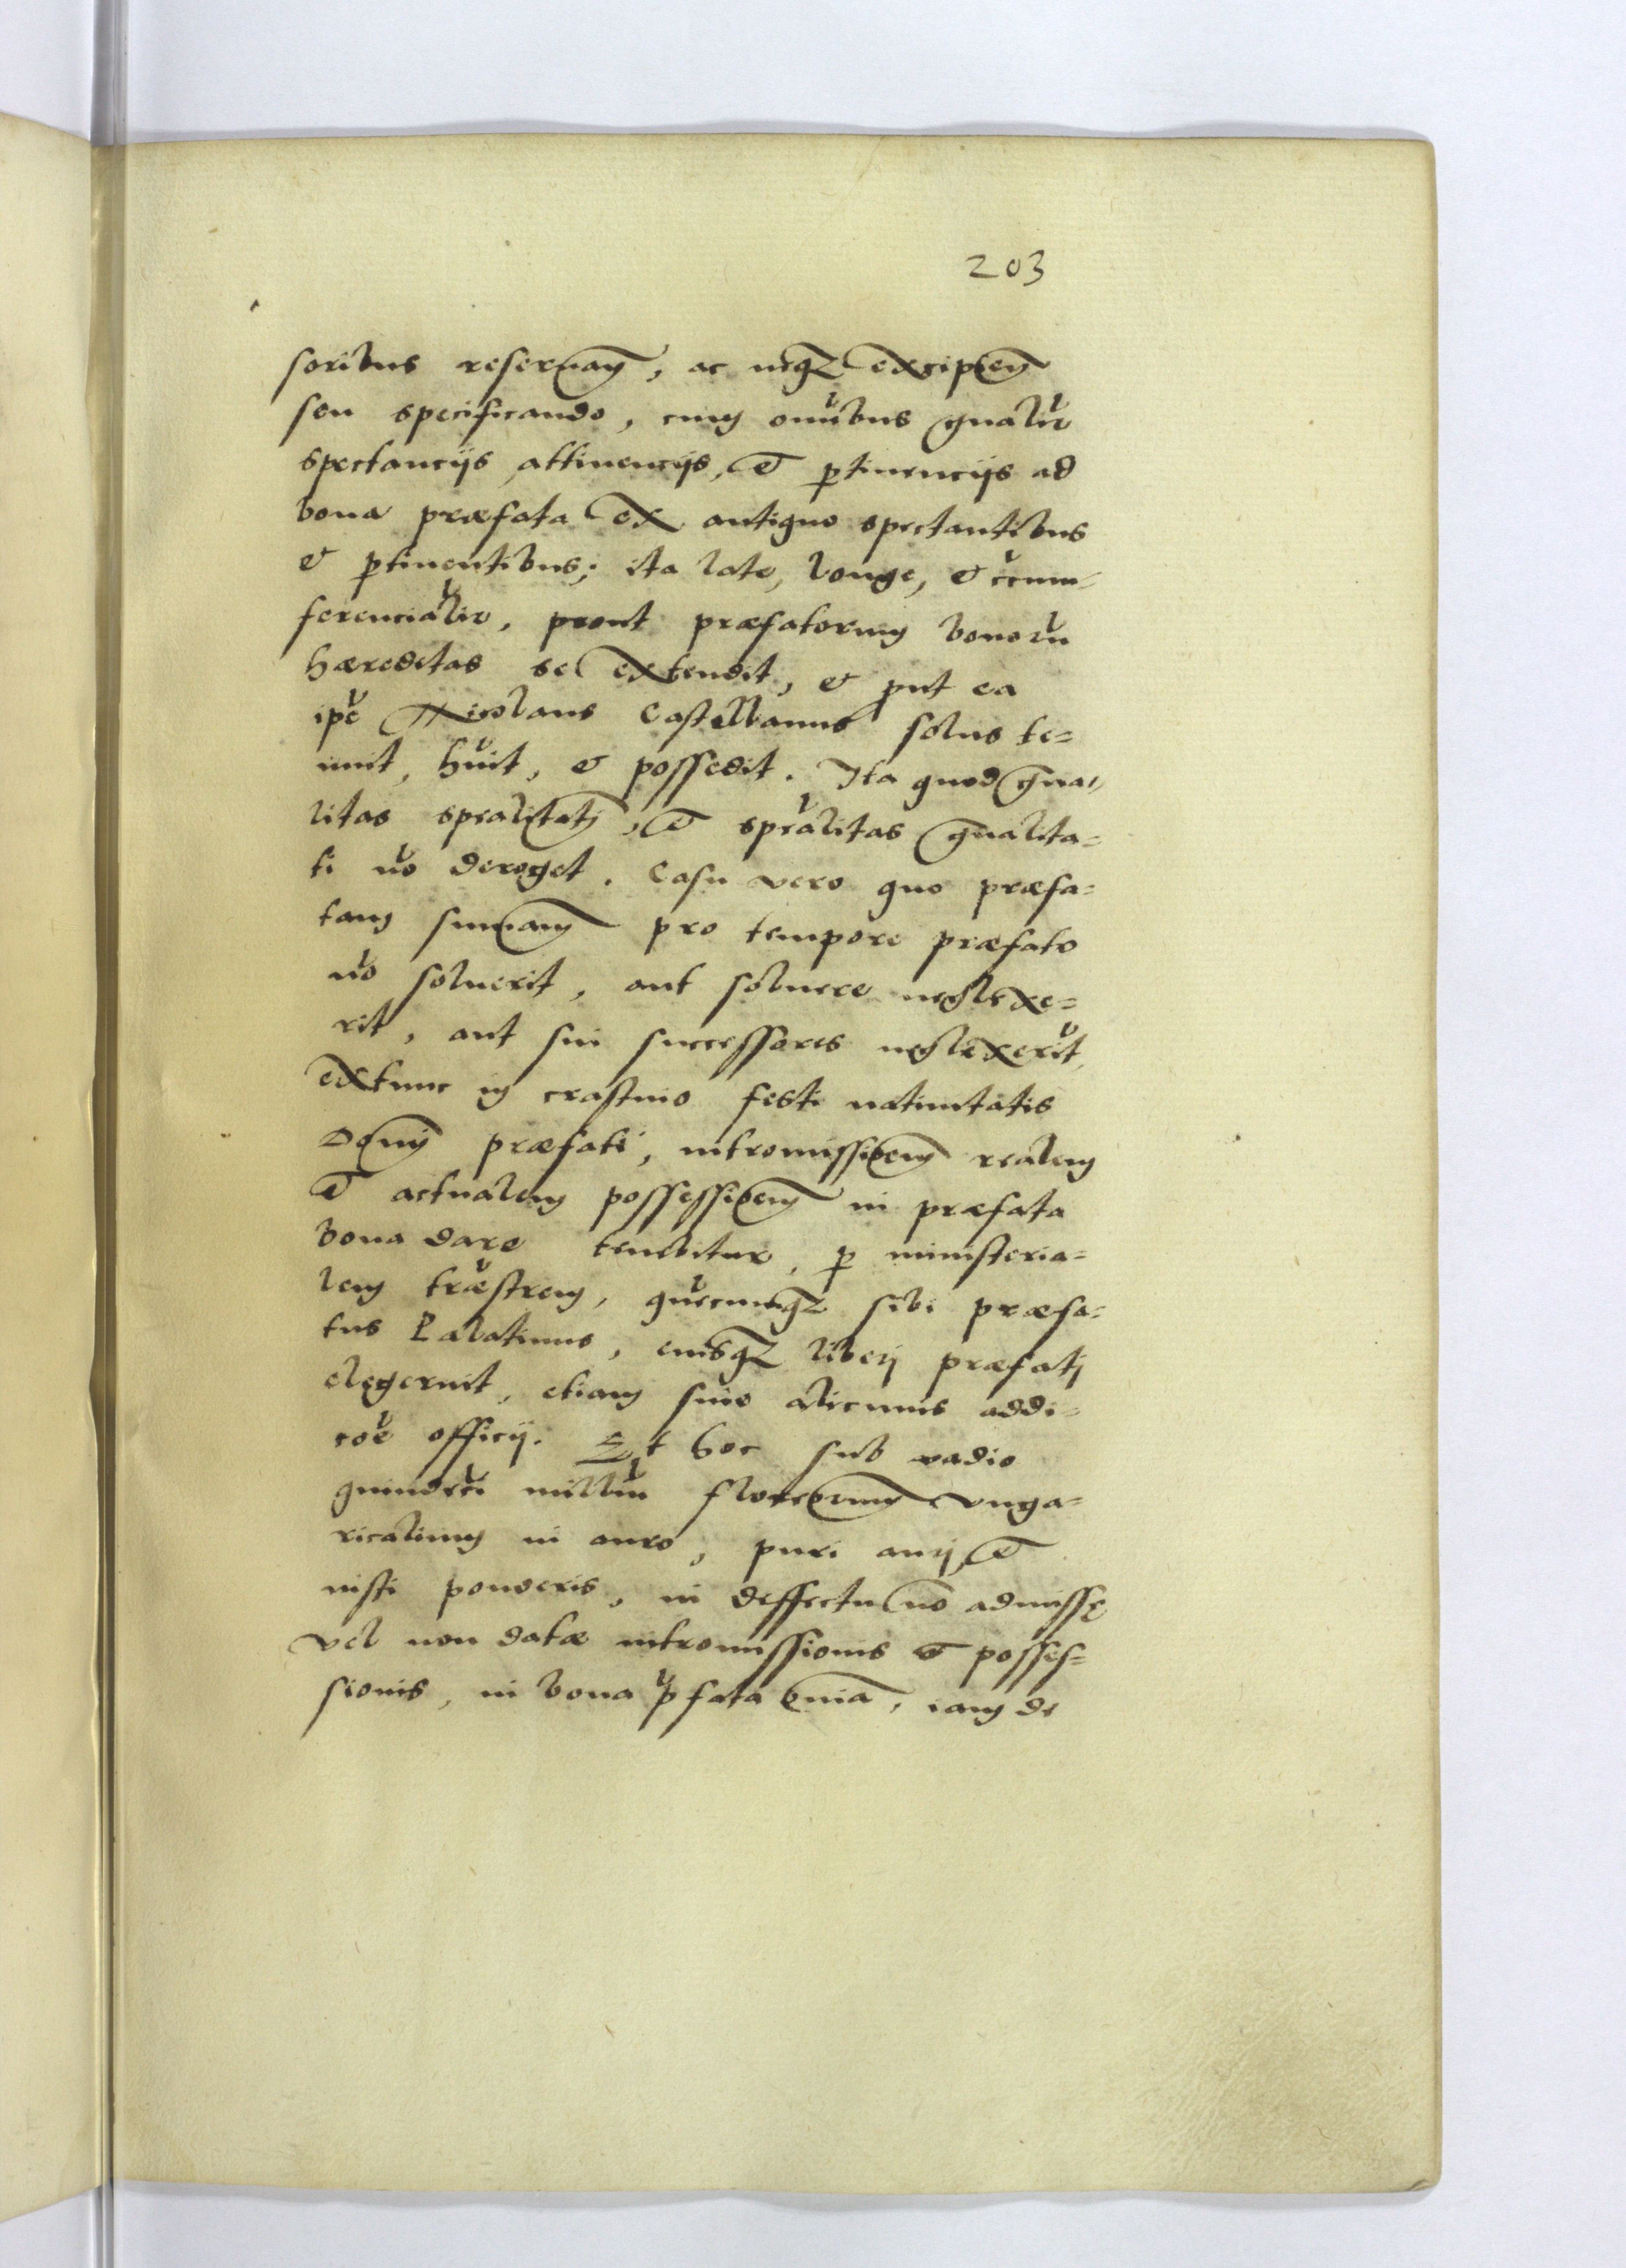 203
soribus reseruan͂, ac neq₃ excipien͂
seu specificando, cum om̃ibus gñaliť
spectancijs, attinencijs, et ꝑtinencijs ad
bona præfata ex antiquo spectantibus
et ꝑtinentibus; ita late, longe, et circum-
ferencialiť, prout præfatorum bonorũ
hæreditas se extendit, et ꝓut ea
ip̃e Nicolaus Castellanus solus te=
nuit, hũit, et possedit. Ita quod gña-
litas sp̃ealitatj, et sp̃ealitas gñalita=
ti nõ deroget. Casu vero quo præfa=
tam sum̃am pro tempore præfato
nõ soluerit, aut soluere neglexe=
rit, aut sui successores neglexerĩt,
extunc in crastino festi natiuitatis
Dn̄j præfati, intromissionem realem
et actualem possessionem in præfata
bona dare tenebitur, ꝑ ministeria=
lem tr̃æstrem, quẽcumq₃ sibi præfa=
tus Palatinus, eiusq₃ liberj præfatj
elegerint, etiam sine alicuius addi=
c̃oẽ officij. Et hoc sub vadio
quindecĩ milliũ florenorum vnga=
ricalium in auro, puri aurj, et
iusti ponderis, in deffectu nõ admissę
vel non datæ intromissionis et posses=
sionis, in bona p̃fata om̃ia, iam de